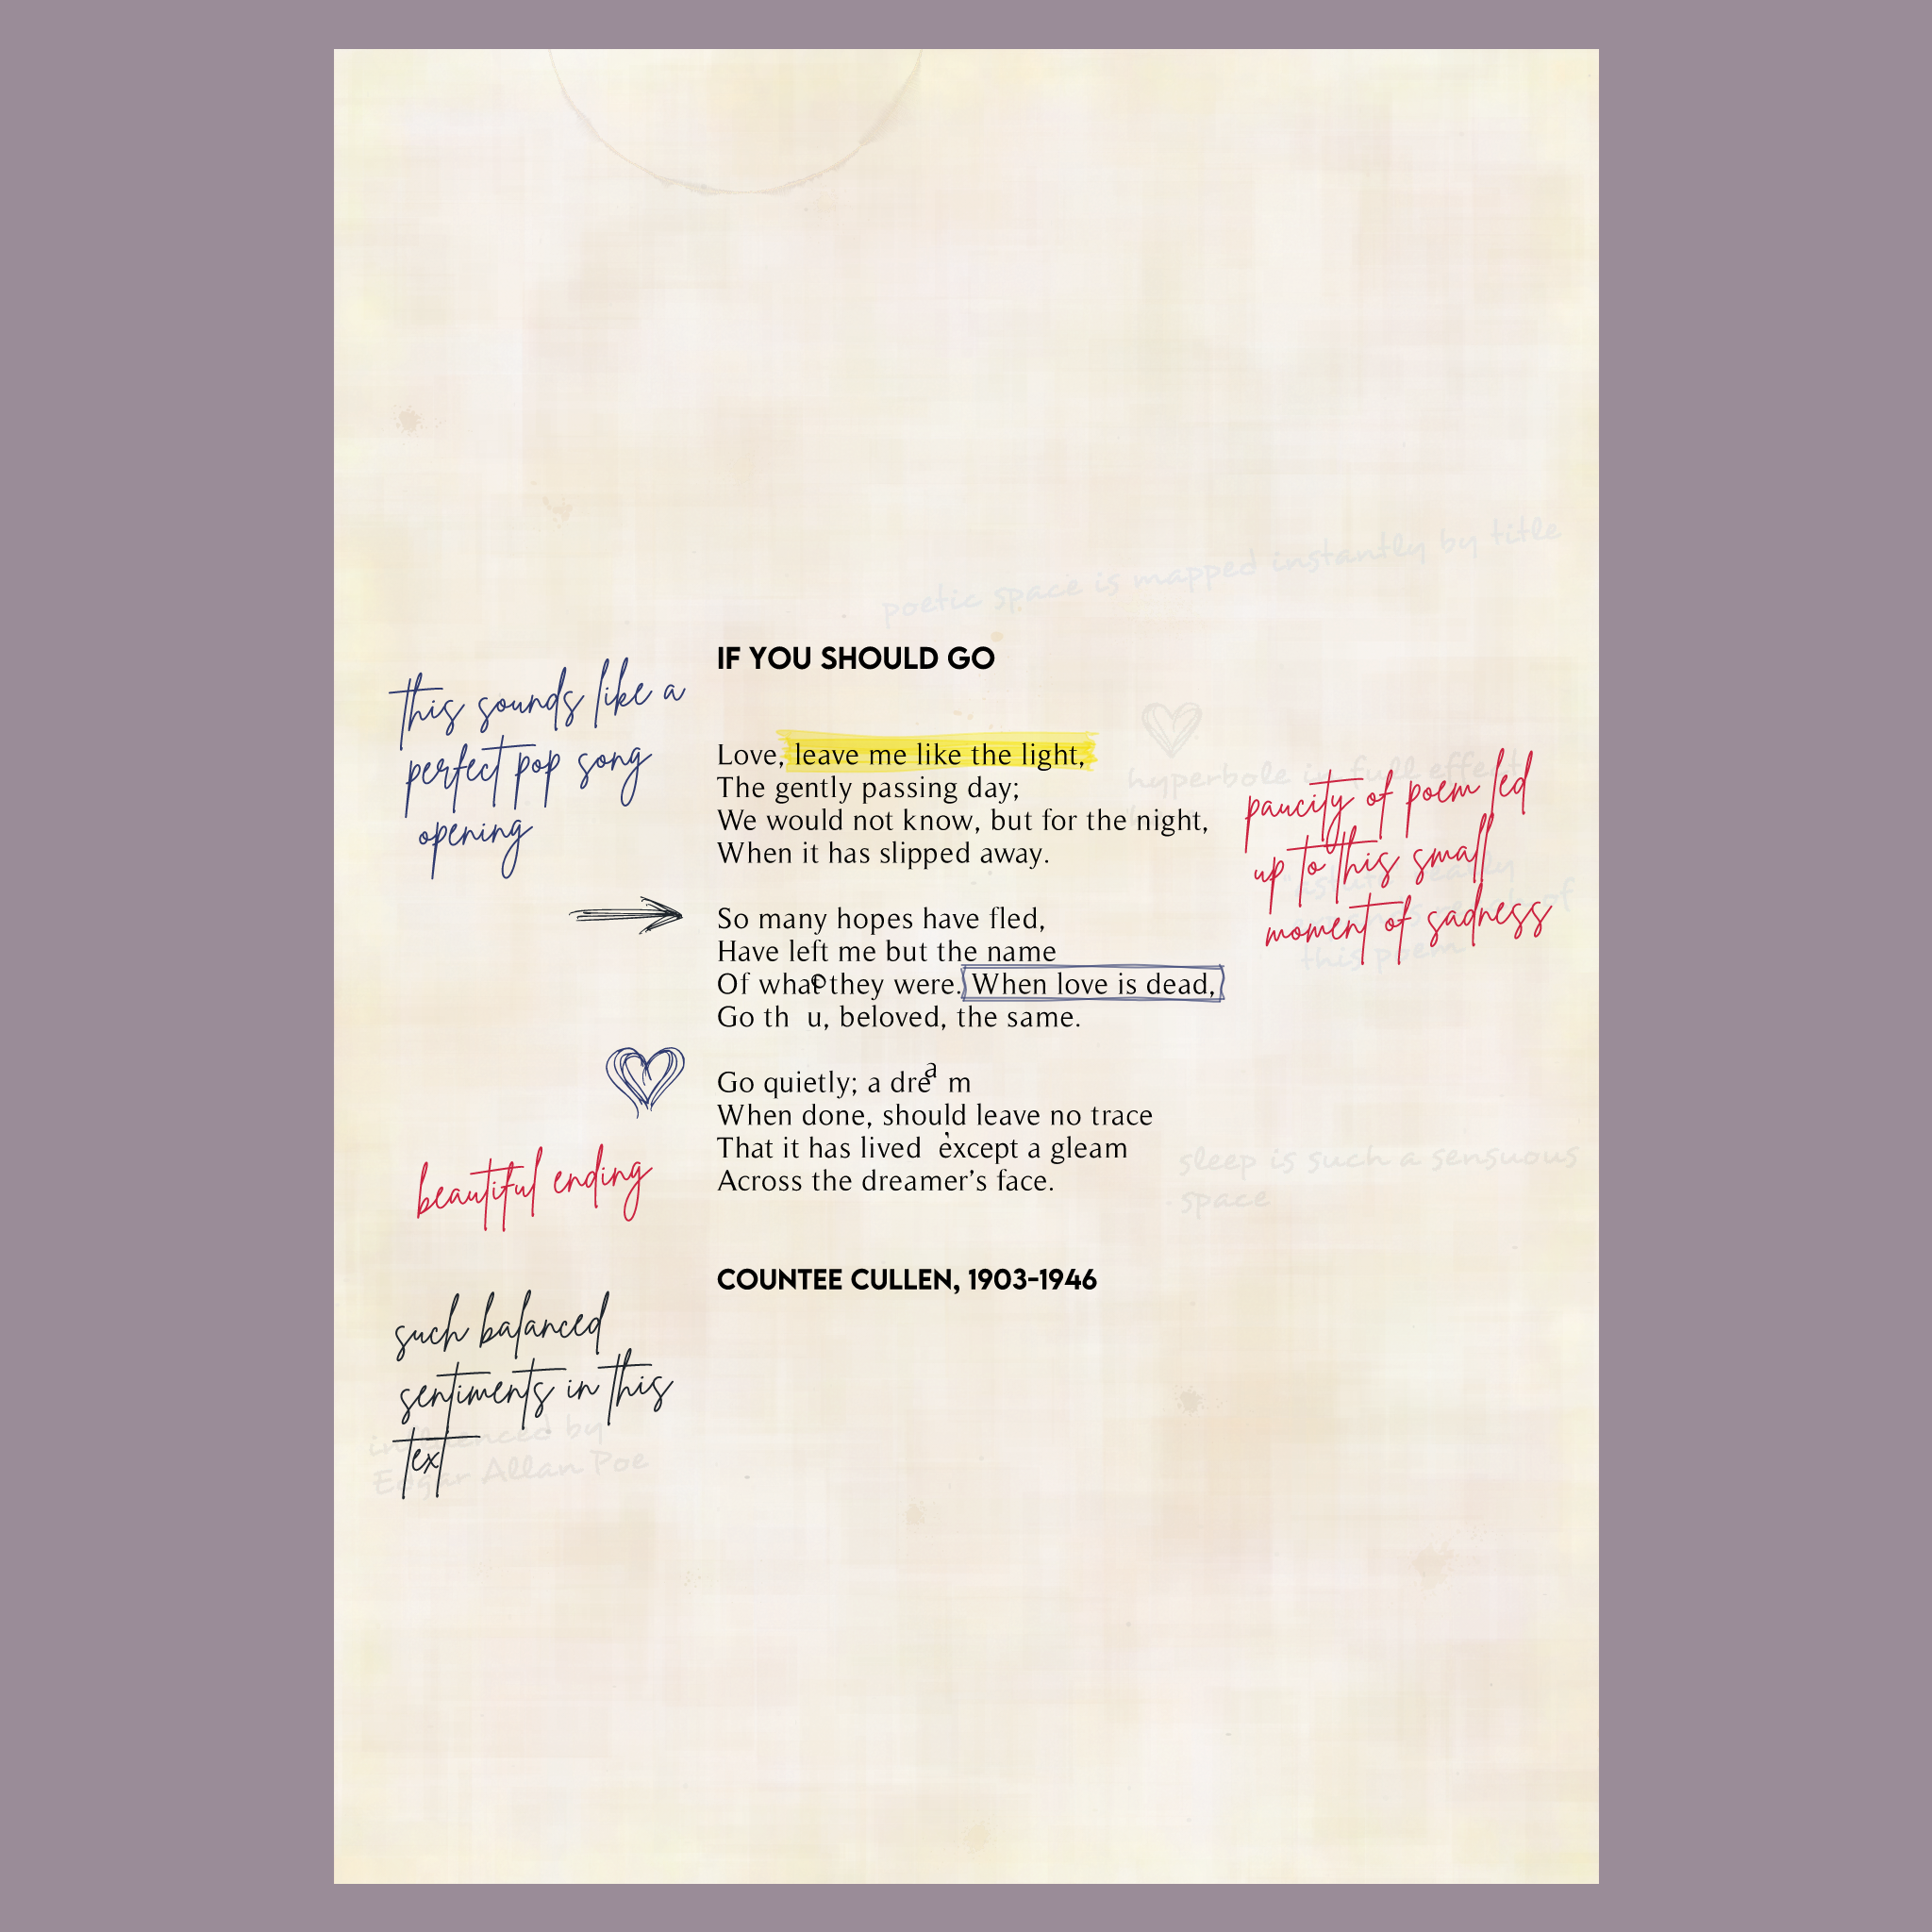 poetic space is mapped instantly by title
IF YOU SHOULD GO
this sounds like a
perfect pop song
opening
Love, leave me like the light,
The gently passing day;
We would not know, but for the night,
When it has slipped away.
hyperbole in full effect
paucity of poem led
up to this small
moment of sadness
this poem
So many hopes have fled,
Have left me but the name
Of what they were. When love is dead,
Go thou, beloved, the same.
Go quietly; a dream
When done, should leave no trace
That it has lived, except a gleam
Across the dreamer’s face.
beautiful ending
sleep is such a sensuous
space
COUNTEE CULLEN, 1903-1946
such balanced
sentiments in this
text
influenced by
Edgar Allan Poe